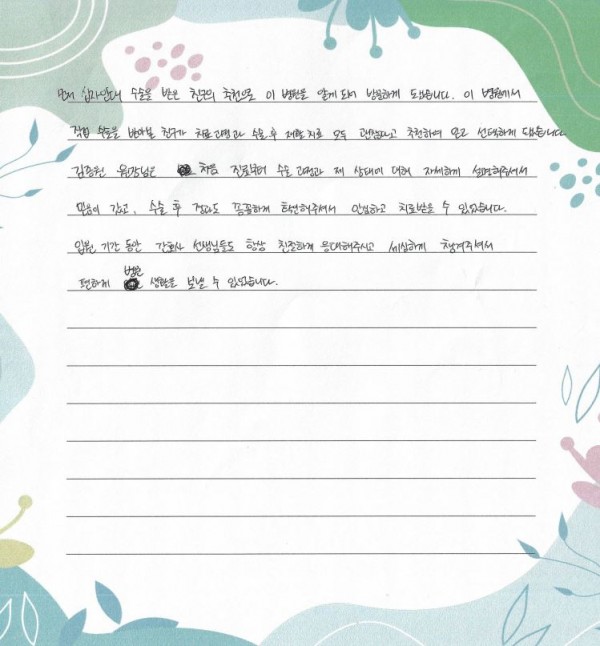 먼저 십자인대 수술을 받은 친구의 추천으로 이 병원을 알게 되어 방문하게 되었습니다. 이 병원에서
직접 수술을 받아본 친구가 치료 과정과 수술 후 재활치료 모두 괜찮다고 추천하여 믿고 선택하게 되었습니다.
김종원 원장님은 처음 진료부터 수술 과정과 제 상태에 대해 자세하게 설명해주셔서
믿음이 갔고, 수술 후 경과도 꼼꼼하게 확인해주셔서 안심하고 치료받을 수 있었습니다.
입원 기간 동안 간호사 선생님들도 항상 친절하게 응대해주시고 세심하게 챙겨주셔서
편하게 병원 생활을 보낼 수 있었습니다.